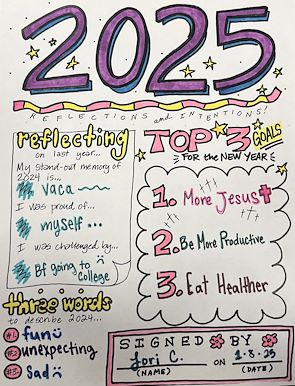 2025
REFLECTIONS and INTENTIONS!
reflecting
on last year...
My stand-out memory of
2024 is...
vaca
I was proud of...
myself ...
I was challenged by...
Bf going to
college
three words
to describe 2024...
#1 fun
#2 unexpecting
#3 sad
TOP 3 GOALS
FOR the NEW YEAR
1. More Jesus
2. Be More Productive
3. Eat Healthier
SIGNED BY
Jori C. ON 1-8-25
(NAME) (DATE)